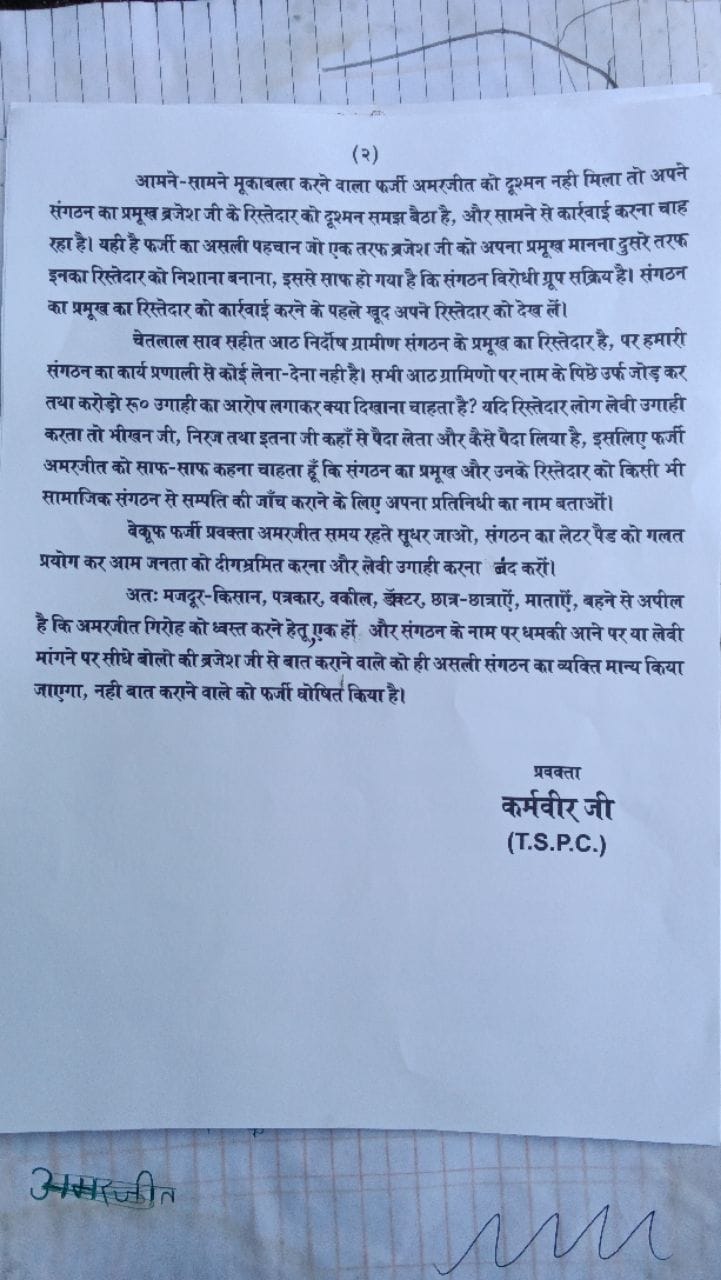 (२)
आमने-सामने मूकाबला करने वाला फर्जी अमरजीत को दूश्मन नही मिला तो अपने
संगठन का प्रमूख ब्रजेश जी के रिस्तेदार को दूश्मन समझ बैठा है, और सामने से कार्रवाई करना चाह
रहा है। यही है फर्जी का असली पहचान जो एक तरफ ब्रजेश जी को अपना प्रमूख मानना दुसरे तरफ
इनका रिस्तेदार को निशाना बनाना, इससे साफ हो गया है कि संगठन विरोधी ग्रूप सक्रिय है। संगठन
का प्रमूख का रिस्तेदार को कार्रवाई करने के पहले खूद अपने रिस्तेदार को देख लें।
चेतलाल साव सहीत आठ निर्दोष ग्रामीण संगठन के प्रमूख का रिस्तेदार है, पर हमारी
संगठन का कार्य प्रणाली से कोई लेना-देना नही है। सभी आठ ग्रामिणो पर नाम के पिछे उर्फ जोड़ कर
तथा करोड़ो रू० उगाही का आरोप लगाकर क्या दिखाना चाहता है? यदि रिस्तेदार लोग लेवी उगाही
करता तो भीखन जी, निरज तथा इतना जी कहाँ से पैदा लेता और कैसे पैदा लिया है, इसलिए फर्जी
अमरजीत को साफ-साफ कहना चाहता हूँ कि संगठन का प्रमूख और उनके रिस्तेदार को किसी भी
सामाजिक संगठन से सम्पति की जाँच कराने के लिए अपना प्रतिनिधी का नाम बताओं।
वेकूफ फर्जी प्रवक्ता अमरजीत समय रहते सूधर जाओ, संगठन का लेटर पैड को गलत
प्रयोग कर आम जनता को दीगभ्रमित करना और लेवी उगाही करना बंद करों।
अतः मजदूर-किसान, पत्रकार, वकील, डॅाक्टर, छात्र-छात्राऐं, माताऐं, बहने से अपील
है कि अमरजीत गिरोह को ध्वस्त करने हेतू एक हों और संगठन के नाम पर धमकी आने पर या लेवी
मांगने पर सीधे बोलो की ब्रजेश जी से बात कराने वाले को ही असली संगठन का व्यक्ति मान्य किया
जाएगा, नही बात कराने वाले को फर्जी घोषित किया है।
प्रवक्ता
कर्मवीर जी
(T.S.P.C.)
अमरजीत